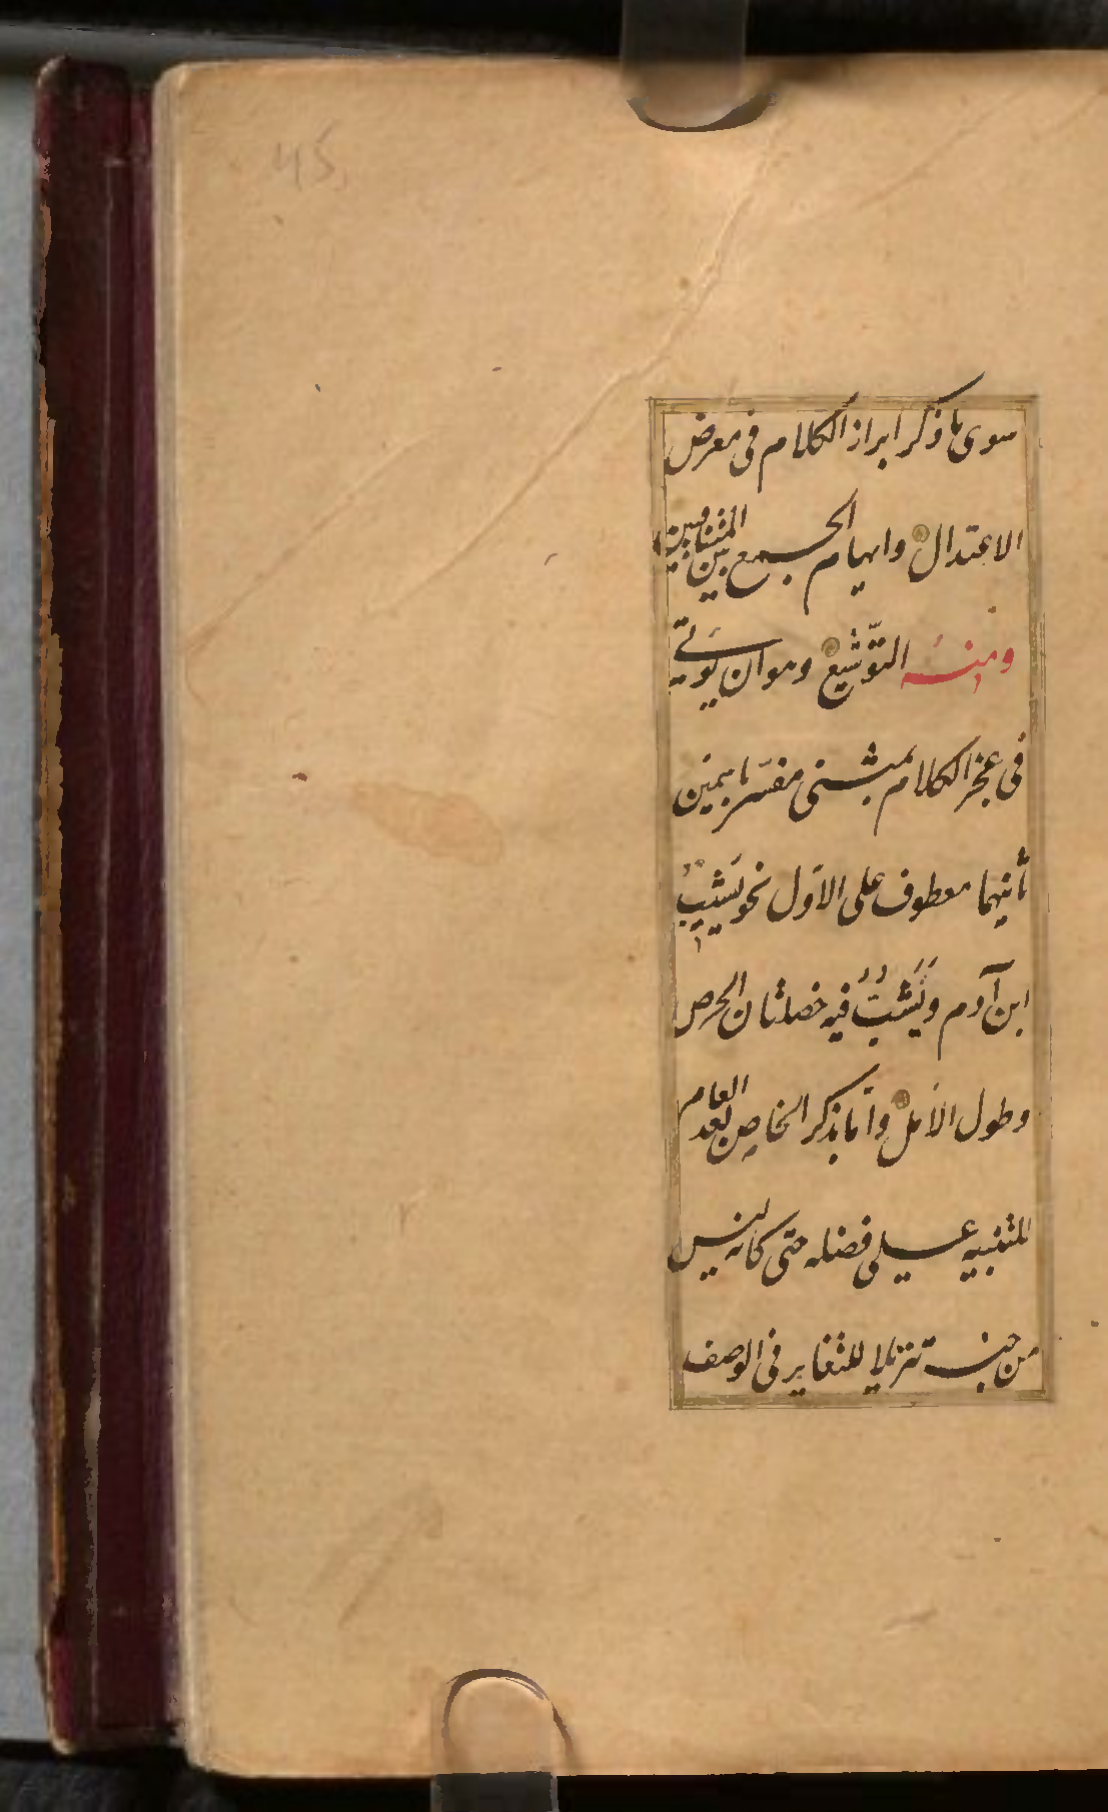 45
سوى ما ذكر ابراز الكلام فى معرض
الاعتدال وايهام الجمع بين المتنافيين
ومنه التّوشيع وهو ان يَوتى
فى عجز الكلام بمثنى مفسّر باسمين
ثانيهما معطوف على الاوّل نحو يَشيبُ
ابن آدم ويَشَبُّ فيه خصلتان الحرص
وطول الاَمل وامّا بذكر الخاص بعد العام
للتنبيه على فضله حتى كانه ليس
من جنسه تنزيلا للتغاير فى الوصف